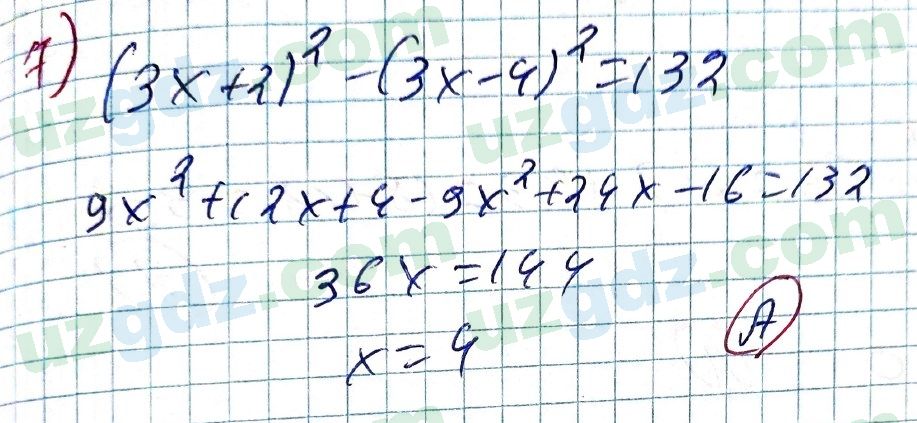 7) (3x+2)² - (3x-4)² = 132
9x² + 12x + 4 - 9x² + 24x - 16 = 132
36x = 144
x = 4
A
uzgdz.com
uzgdz.com
uzgdz.com
uzgdz.com
uzgdz.com
uzgdz.com